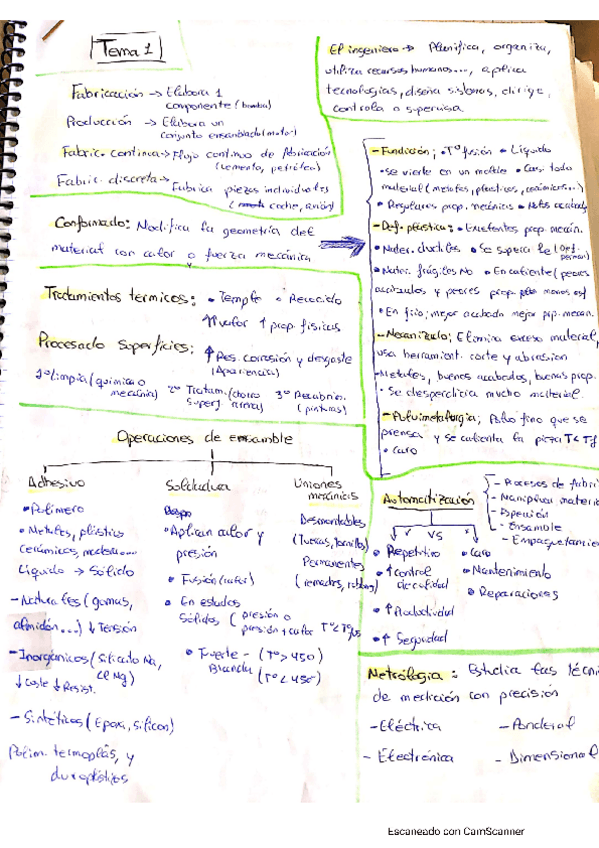 Tema 1
Fabricación → Elabora 1
componente (bomba)
Producción → Elabora un
conjunto ensamblado (motor)
Fabric. continua → Flujo continuo de fabricación
(cemento, petróleo)
Fabric. discreta → Fabrica piezas individuales
coche, avión)
Conformado: Modifica la geometría del
material con calor o fuerza mecánica
Tratamientos termicos: • Temple • Recocido
↑ valor ↑ prop. físicas
Procesado Superficies: ↑ Res. corrosión y desgaste
(Apariencia)
1º limpia (química o
mecánica)
2º Tratam.
superf.
3º Recubrim.
(pinturas)
Operaciones de ensamble
Adhesivo
• Polímero
• Metales, plástico
cerámicos, madera...
Líquido → Sólido
- Naturales (gomas,
almidón...) ↓ Tensión
- Inorgánicos (Silicato Na,
↓ Coste ↓ Resist.
- Sintéticos (Epoxi, silicon)
Polim. termoplás, y
duroplásticos
Soldadura
• Aplican calor y
presión
• Fusión (calor)
• En estado
sólidos (presión o
presión + calor Tº < Tº fus
• Fuerte - (Tº > 450)
Blanda (Tº < 450)
Uniones
mecánicas
Desmontables
(Tuercas, tornillos)
Permanentes
(remaches,
El ingeniero → Planifica, organiza,
utiliza recursos humanos..., aplica
tecnologías, diseña sistemas, dirige,
controla o supervisa.
- Fundición; • Tº fusión • Líquido
• Se vierte en un molde • Casi todo
material (metales, plásticos, cerámicos...)
• Regulares prop. mecánicas
- Def. plástica: • Excelentes prop. mecán.
• Mater. ductiles • Se supera le
• Mater. frágiles No • En caliente (peores
acabados y peores prop.
• En frío; mejor acabado mejor prop. mecan.
- Mecanizado; Elimina exceso material,
usa herramient. corte y abrasion
- Metales, buenos acabados, buenas prop.
• Se desperdicia mucho material.
- Pulvimetalurgia; Polvo fino que se
prensa y se calienta la pieza T < Tf
• Caro
Automatización
- Procesos de fabri
- Manipular materia
- Inspección
- Ensamble
- Empaquetamien
VS
• Repetitivo
• ↑ Control
de calidad
• ↑ Productividad
• ↑ Seguridad
• Caro
• Mantenimiento
• Reparaciones
Metrología: Estudia las técni
de medición con precisión
- Eléctrica
- Ponderal
- Electrónica
- Dimensional
Escaneado con CamScanner